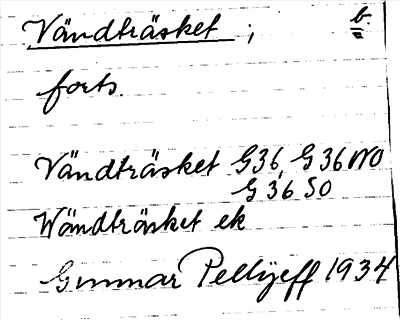 Vändträsket ; b.
forts.
Vändträsket G36, G36 NO
G 36 SO
Wändträsket ek
Gunnar Pellijeff 1934